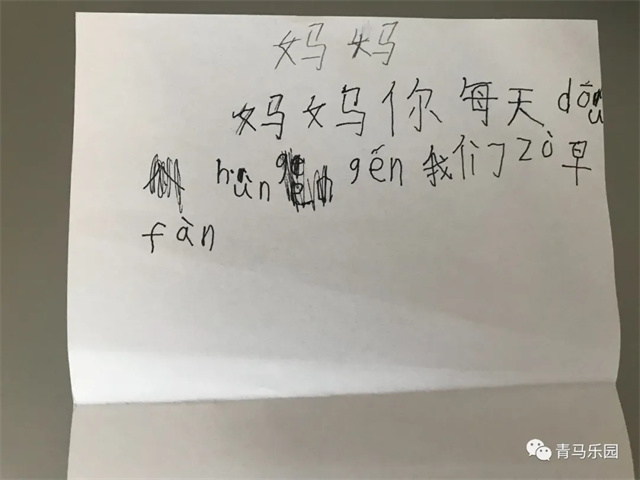 妈妈
妈妈你每天dōu
hūn gěn我们zò早
fàn
青马乐园